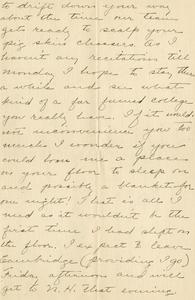 to drift down your way
about the time our team
get ready to scalp your
pig skin chasers. As I
havent any recitations till
Monday I hope to stay there
a while and see what
kind of a far famed college
you really have. If it would
not inconvenience you too
much I wonder if you
could loan me a place
on your floor to sleep on
and possibly a blanket for
one night! That is all I
need as it wouldn't be the
first time I had slept on
the floor. I expect to leave
Cambridge (providing I go)
Friday afternoon and will
get to N. H. that evening